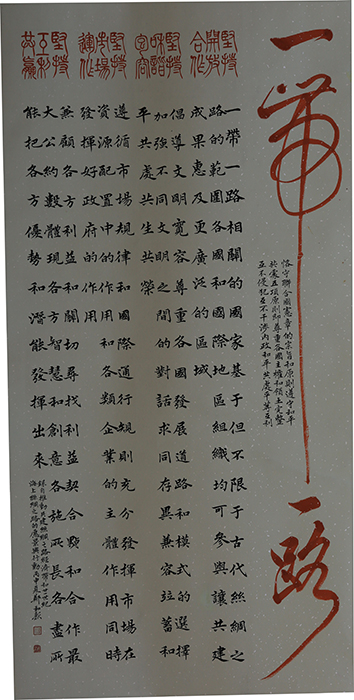 一帶一路
恪守聯合國憲章的宗旨和原則遵守和平
共處五項原則即尊重各國主權和領土完整
互不侵犯互不干涉內政和平共處平等互利
堅持
開放
合作
堅持
和諧
包容
堅持
市場
運作
堅持
互利
共贏
一帶一路相關的國家基于但不限于古代絲綢之
路的範圍各國和國際地區組織均可參與讓共建
成果惠及更廣泛的區域
倡導文明寬容尊重各國發展道路和模式的選擇
加強不同文明之間的對話求同存異兼容並蓄和
平共處共生共榮
遵循市場規律和國際通行規則充分發揮市場在
資源配置中的作用和各類企業的主體作用同時
發揮好政府的作用
兼顧各方利益和關切尋找利益契合點和合作最
大公約數體現各方智慧和創意各施所長各盡所
能把各方優勢和潛能發揮出來
錄自推動共建絲綢之路經濟帶和廿一世紀
海上絲綢之路的願景與行動丙申夏